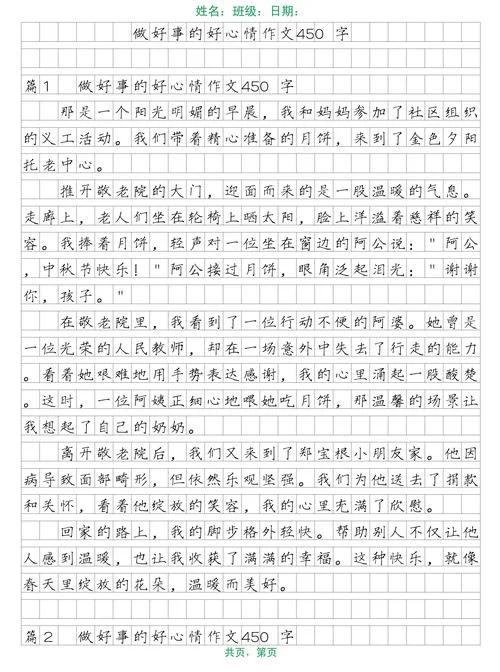 姓名：班级：日期：
做好事的好心情作文450 字
篇1 做好事的好心情作文450 字
那是一个阳光明媚的早晨，我和妈妈参加了社区组织
的义工活动。我们带着精心准备的月饼，来到了金色夕阳
托老中心。
推开敬老院的大门，迎面而来的是一股温暖的气息。
走廊上，老人们坐在轮椅上晒太阳，脸上洋溢着慈祥的笑
容。我捧着月饼，轻声对一位坐在窗边的阿公说："阿公
，中秋节快乐！"阿公接过月饼，眼角泛起泪光："谢谢
你，孩子。"
在敬老院里，我看到了一位行动不便的阿婆。她曾是
一位光荣的人民教师，却在一场意外中失去了行走的能力
。看着她艰难地用手势表达感谢，我的心里涌起一股酸楚
。这时，一位阿姨正细心地喂她吃月饼，那温馨的场景让
我想起了自己的奶奶。
离开敬老院后，我们又来到了郑宝根小朋友家。他因
病导致面部畸形，但依然乐观坚强。我们为他送去了捐款
和关怀，看着他绽放的笑容，我的心里充满了欣慰。
回家的路上，我的脚步格外轻快。帮助别人不仅让他
人感到温暖，也让我收获了满满的幸福。这种快乐，就像
春天里绽放的花朵，温暖而美好。
篇2 做好事的好心情作文450 字
共页，第页